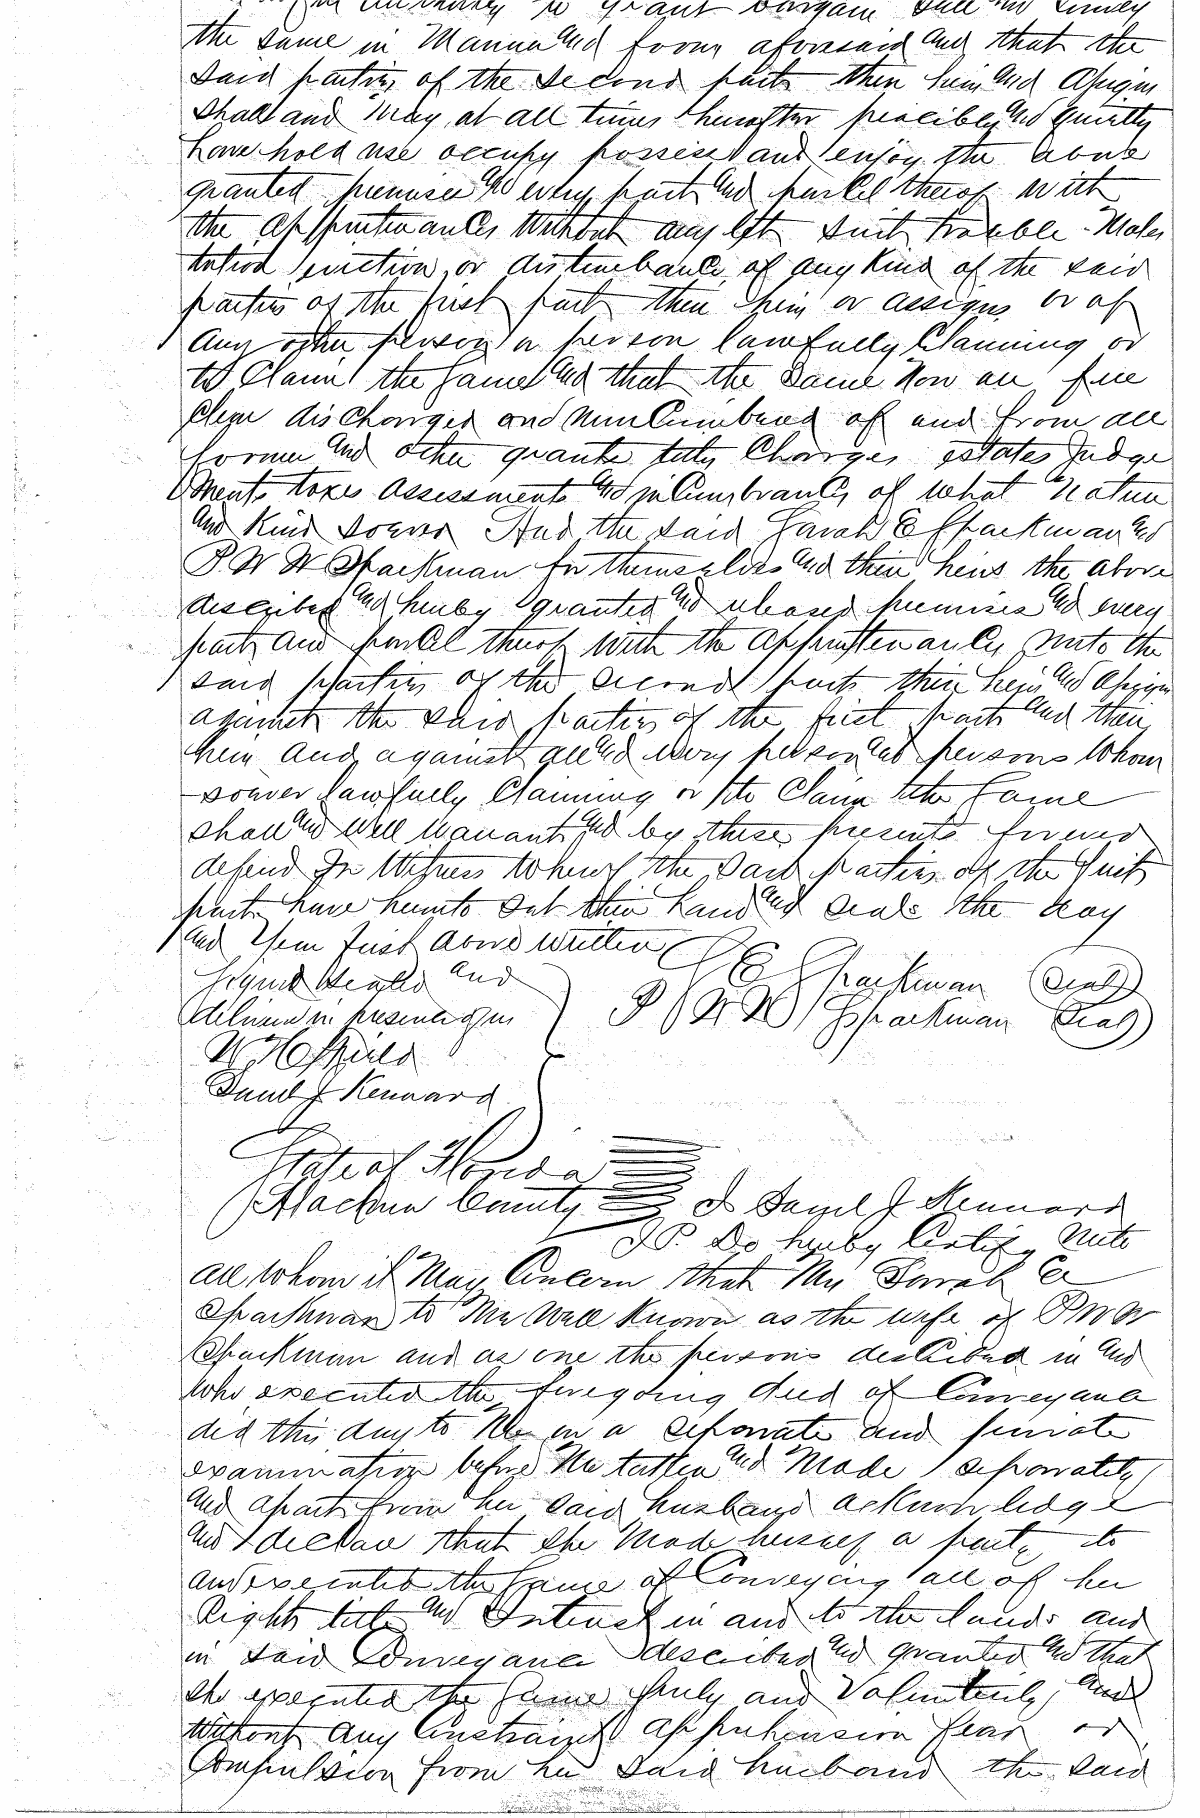 authority to grant bargain sell and convey
the same in Manner and form aforesaid and that the
said parties of the second part their heirs and assigns
shall and May at all times hereafter peacibley and quietly
have hold use occupy possess and enjoy the above
granted premises and every part and parcel therof with
the appurtenances Without any let suit trouble Moles
tation eviction or disturbance of any Kind of the said
parties of the first part their heirs or assigns or of
any other person or person lawfully Claiming or
to Claim the same and that the same Now are free
clear discharged and unincumbered of and from all
former and other grants titles Charges estates Judge
Ments taxes assessments and incumbrances of what Nature
and Kind soever And the said Sarah E Sparkman and
P W W Sparkman for themselves and their heirs the above
described and hereby granted and released premises and every
part and parcel therof With the appurtenances unto the
said parties of the second part their heirs and assigns
against the said parties of the first part and their
heirs and against all and every person and persons Whom
soever lawfully Claiming or to Claim the same
shall and Will Warrant and by these presents forever
defend In Witness Whereof the said parties of the first
part have hereunto set their hand and seals the day
and Year first above written
Signed Sealed and
S E Sparkman (Seal)
delivered in presence of us
P W W Sparkman (Seal)
Saml J Kennard
State of Florida
Alachua County I Saml J Kennard
J P. Do hereby Certify Unto
all Whom it May Concern that Mrs Sarah E
Sparkman to Me Well Known as the wife of P W W
Sparkman and as one the persons described in and
who executed the foregoing deed of Conveyance
did this day to Me on a seperate and private
examination before Me taken and Made seperately
and apart from her said husband acknowledge
and declare that she Made herself a party to
and executed the same of Conveying all of her
Rights title and Interest in and to the lands and
in said Conveyance described and granted and that
she executed the same freely and Voluntarily and
Without any Constraint apprehension fear or
Compulsion from her said husband the said